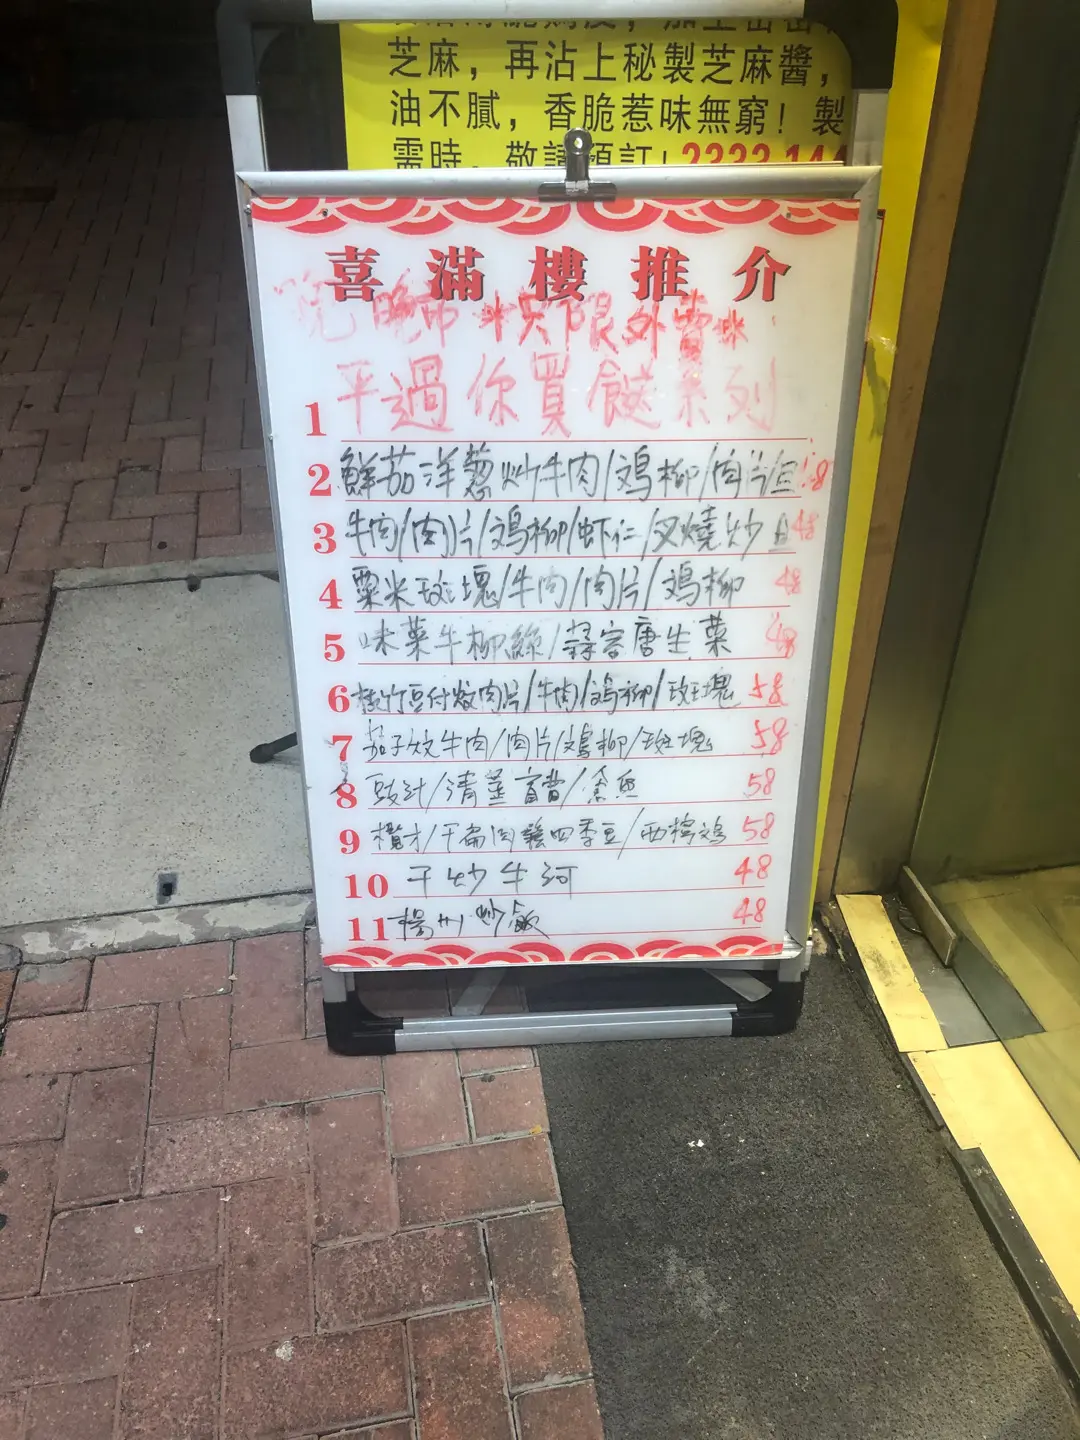 芝麻，再沾上秘製芝麻醬，
油不膩，香脆惹味無窮！製
需時，敬請預訂！2333 144
喜滿樓推介
晚市 *只限外賣*
1 平過你買餸系列
2 鮮茄洋葱炒牛肉/鸡柳/肉片/旦 48
3 牛肉/肉片/鸡柳/虾仁/叉燒炒旦 48
4 粟米玟塊/牛肉/肉片/鸡柳 48
5 味菜牛柳絲/蒜容唐生菜 48
6 枝竹豆付炆肉片/牛肉/鸡柳/玟塊 58
7 茄子炆牛肉/肉片/鸡柳/斑塊 58
8 豉汁/清蒸 58
9 欖才/干扁肉鬆四季豆/西檸鸡 58
10 干炒牛河 48
11 楊州炒飯 48